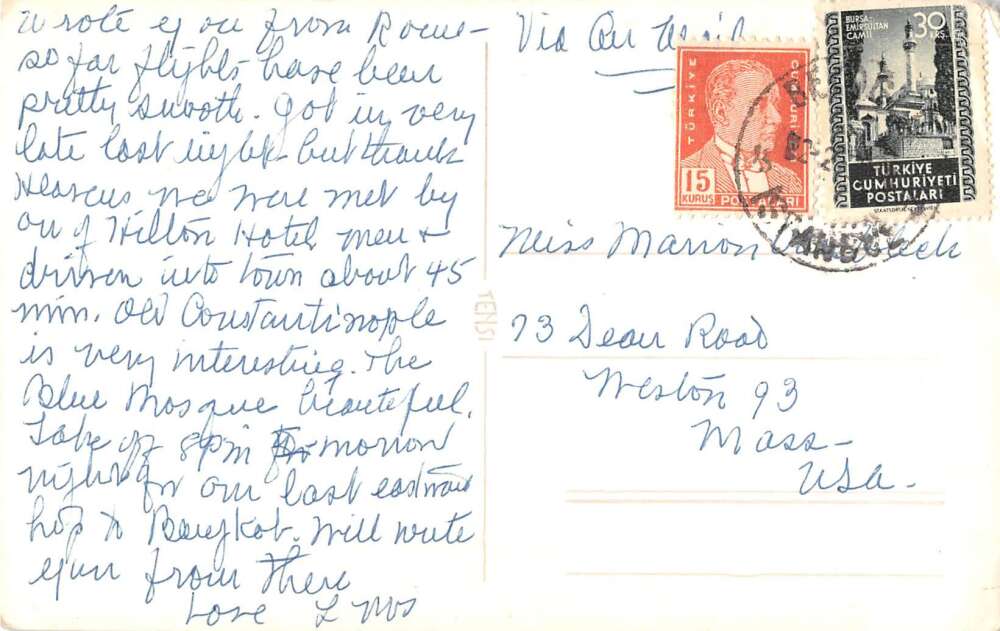 Wrote you from Rome -
so far flights have been
pretty smooth. Got in very
late last night - but thank
Heavens we were met by
on of Hilton Hotel men &
driven into town about 45
min. Old Constantinople
is very interesting. The
Blue Mosque beauteful.
Take off 8 PM tomorrow
night for our last eastward
hop to Bangkok. Will write
you from there
Love
Via Air Mail
TÜRKİYE
CUMHURİ
15
KURUŞ POSTALARI
BURSA
EMİRSULTAN
CAMİİ
30
KRŞ.
TÜRKİYE
CUMHURİYETİ
POSTALARI
Miss Marion
73 Dean Road
Weston 93
Mass -
USA.